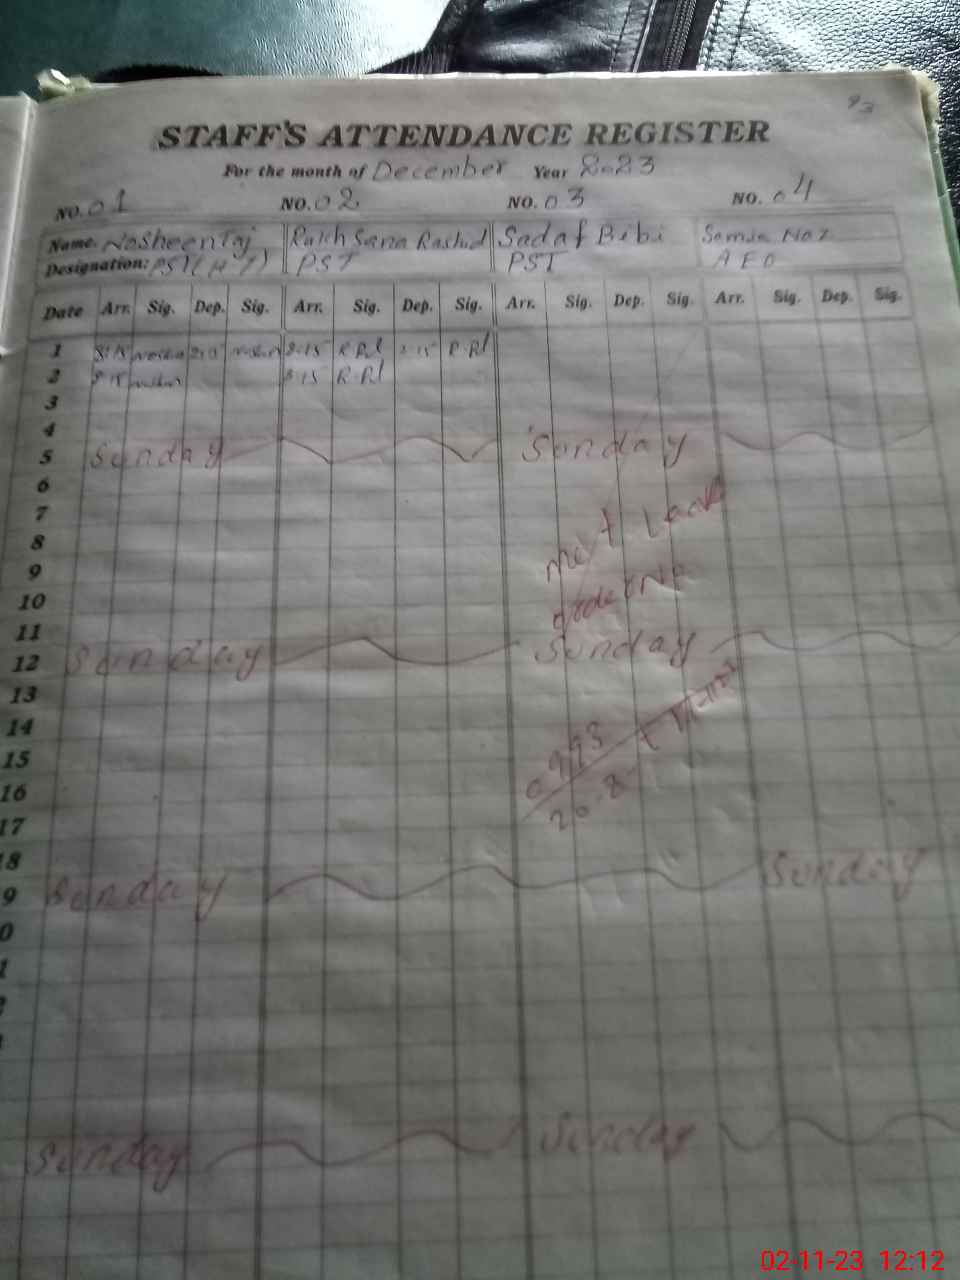 93
STAFF'S ATTENDANCE REGISTER
For the month of December Year 2023
NO. 01 NO. 02 NO. 03 NO. 04
Name. Nosheen Taj Rukh Sana Rashid Sadaf Bibi Samia Naz
Designation: PST (H T) PST PST AEO
Date Arr. Sig. Dep. Sig. Arr. Sig. Dep. Sig. Arr. Sig. Dep. Sig. Arr. Sig. Dep. Sig.
1 8:15 2:15 8:15 R.Rd 2:15 R.Rd
2 8:15 8:15 R.Rd
3
4
5 Sunday Sunday
6
7
mat Leave
8
9
order No
10
11
12 Sunday Sunday
13
14
15
16
17
18
19 Sunday Sunday
Sunday Sunday
02-11-23 12:12